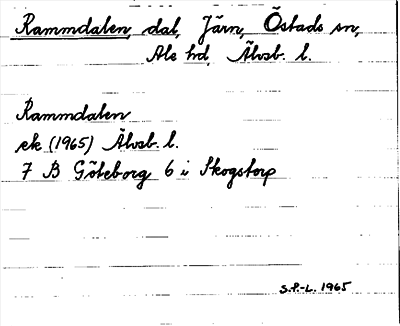 Rammdalen, dal, Järn, Östads sn,
Ale hd, Älvsb. l.
Rammdalen
ek (1965) Älvsb. l.
7 B Göteborg 6 i Skogstorp
S.P.-L. 1965